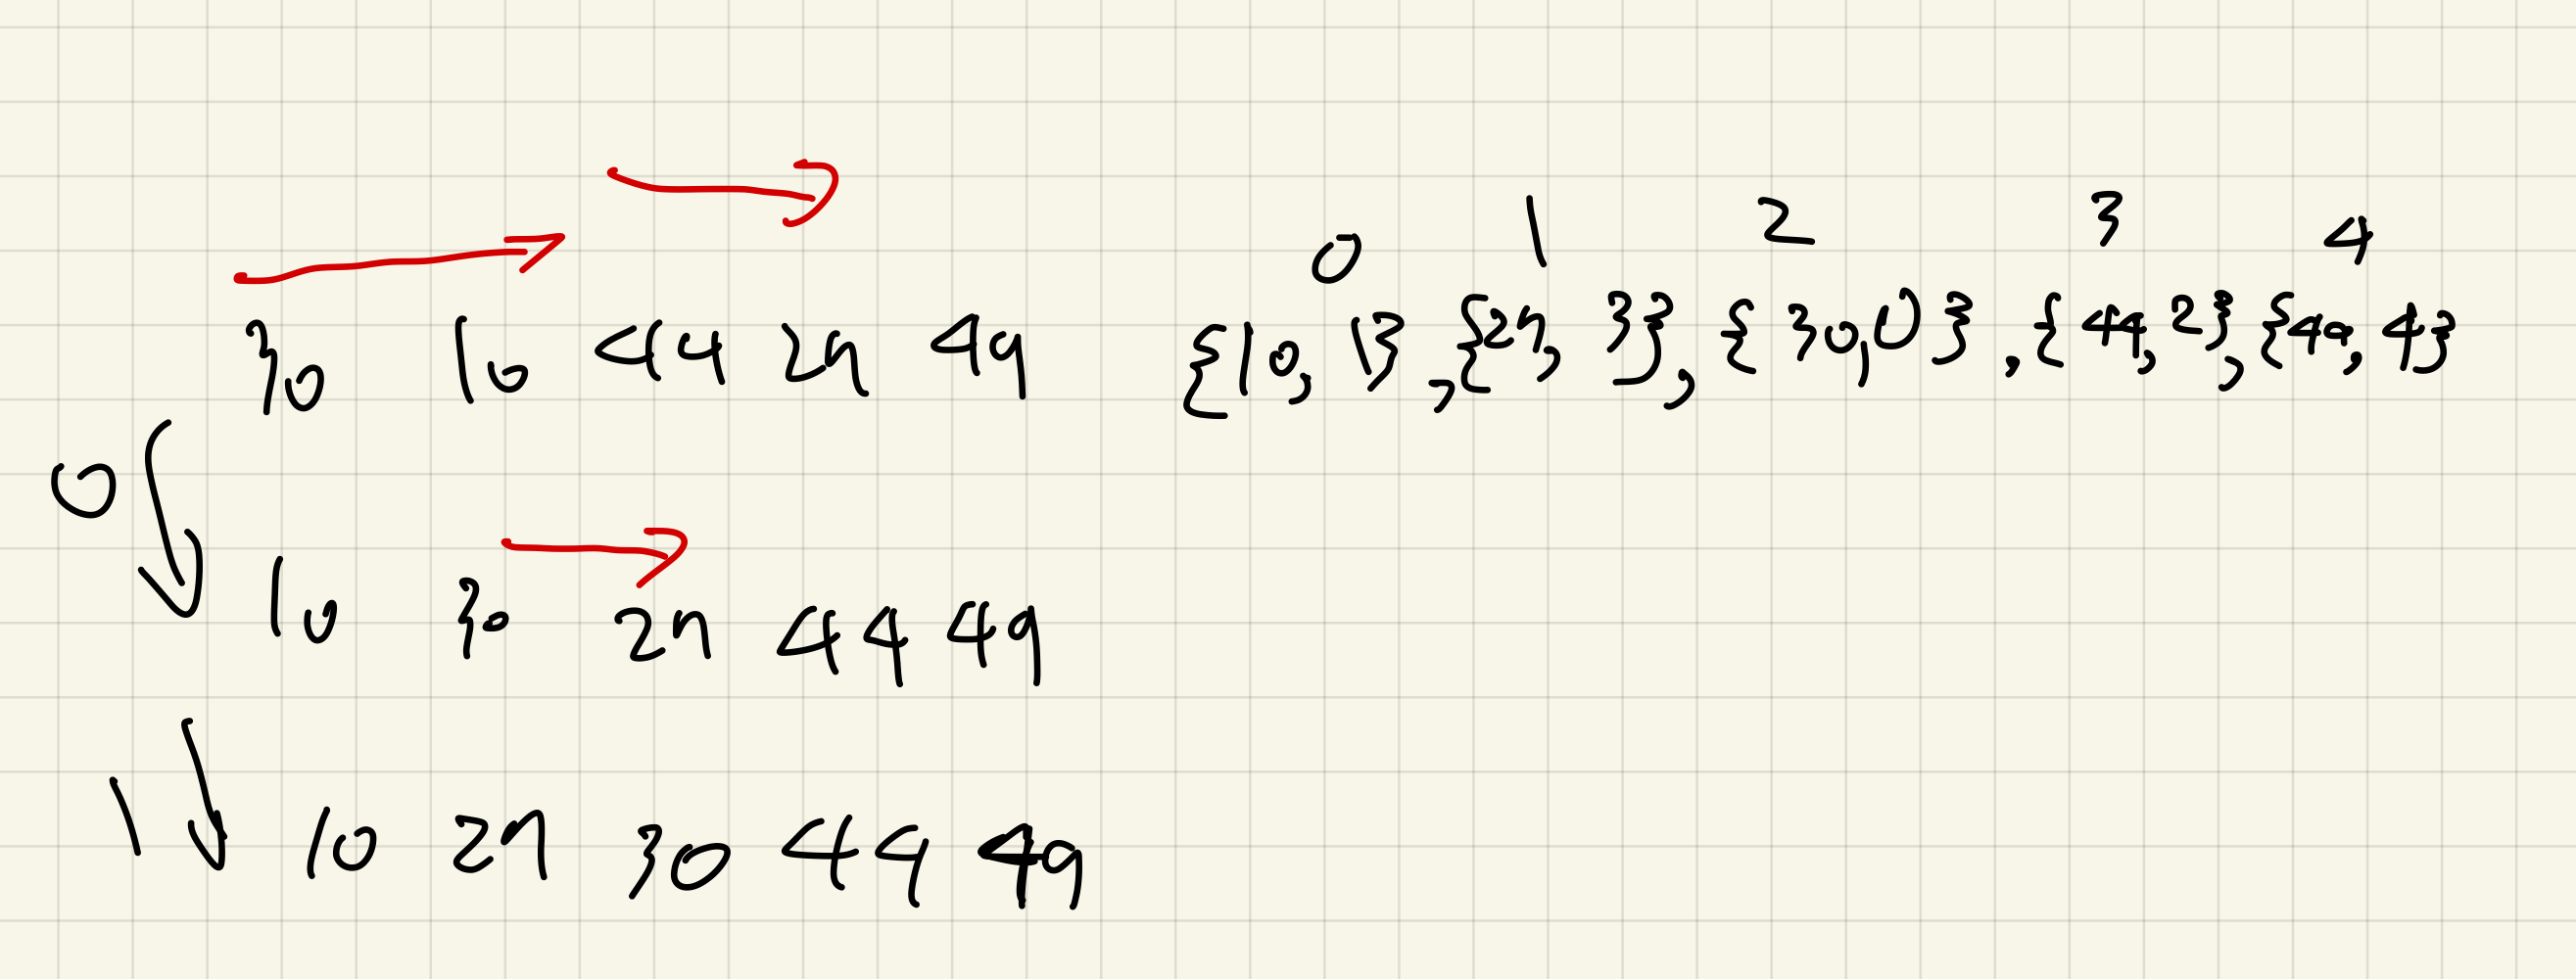 0 1 2 3 4
30 10 44 27 49 {10, 1}, {27, 3}, {30,0}, {44,2}, {49,4}
0
10 30 27 44 49
1
10 27 30 44 49